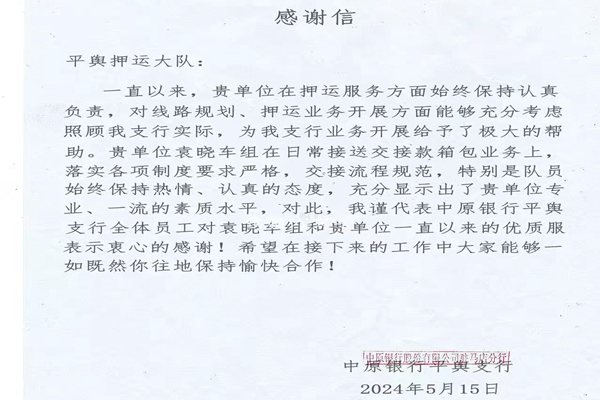 感谢信
平舆押运大队：
一直以来，贵单位在押运服务方面始终保持认真
负责，对线路规划、押运业务开展方面能够充分考虑
照顾我支行实际，为我支行业务开展给予了极大的帮
助。贵单位袁晓车组在日常接送交接款箱包业务上，
落实各项制度要求严格，交接流程规范，特别是队员
始终保持热情、认真的态度，充分显示出了贵单位专
业、一流的素质水平，对此，我谨代表中原银行平舆
支行全体员工对袁晓车组和贵单位一直以来的优质服
表示衷心的感谢！希望在接下来的工作中大家能够一
如既然你往地保持愉快合作！
中原银行股份有限公司驻马店分行
中原银行平舆支行
2024年5月15日